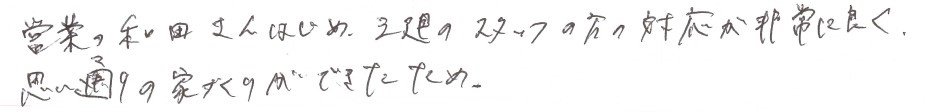 営業の和田さんはじめ、工廻のスタッフの方の対応が非常に良く、
思い通りの家づくりができたため。